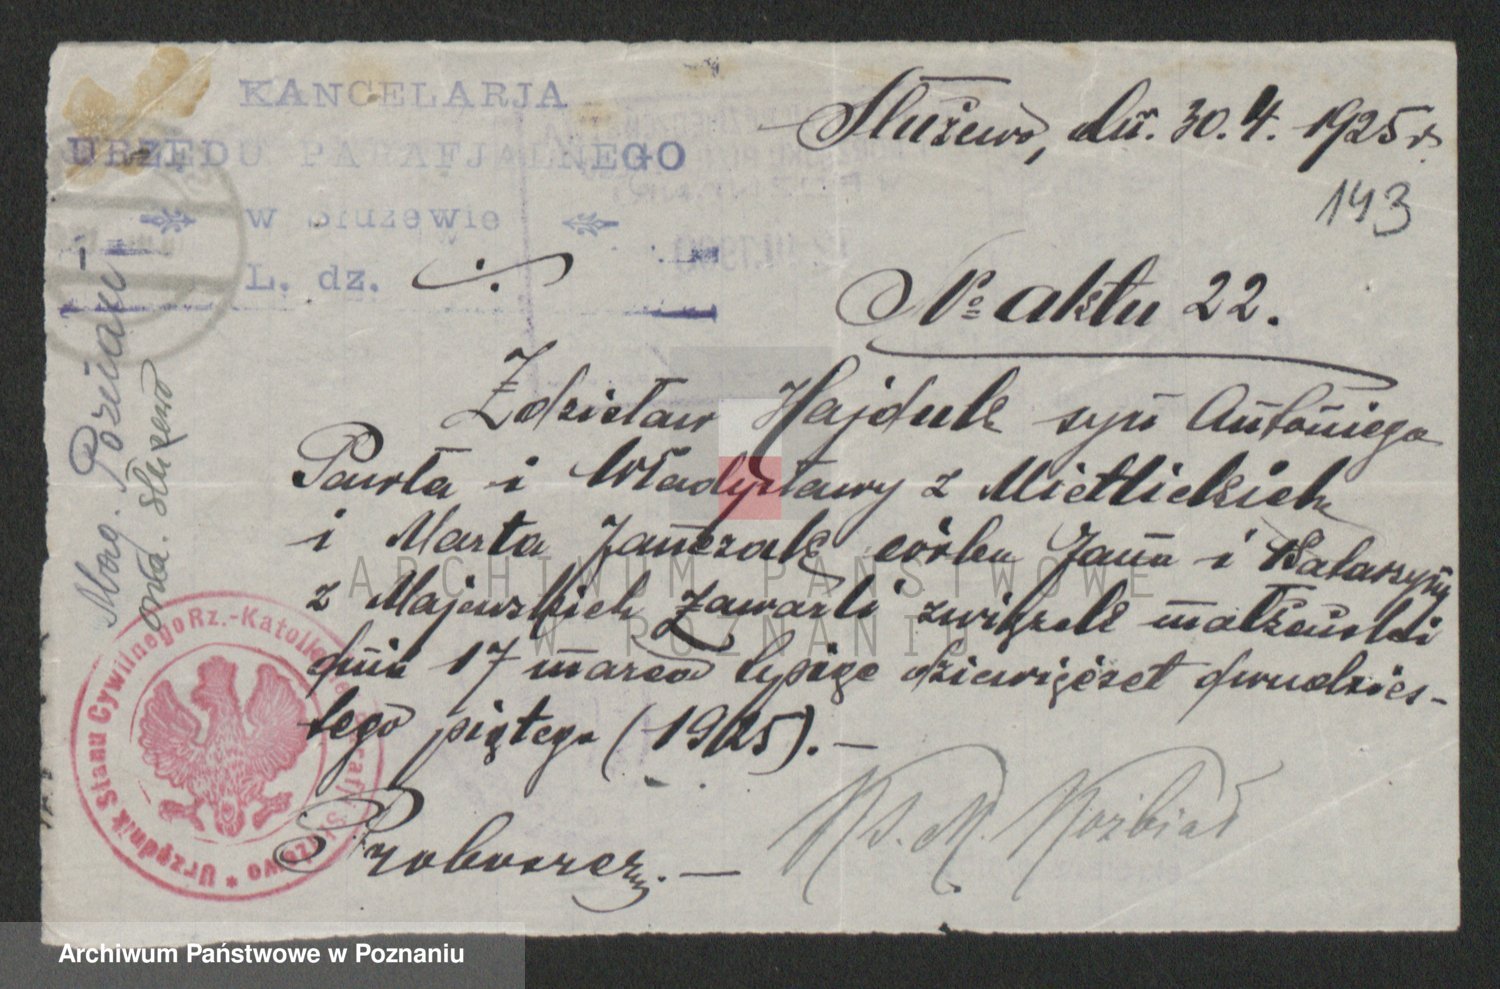 KANCELARJA
URZĘDU PARAFJALNEGO
w Służewie
L. dz.
Służewo, dn. 30. 4. 1925 r.
143
No aktu 22.
Zdzisław Hajduk syn Antoniego
Pawła i Władysławy z Mietlickich
i Marta Janczak córka Jana i Katarzyny
z Majewskich zawarli związek małżeński
dnia 17 marca tysiąc dziewięćset dwudzies-
tego piątego (1925). —
Proboszcz. —
Ks. M.
Mag. Poznań
Służewo
Urzędnik Stanu Cywilnego Rz.-Katolickiej Parafji Służewo *
ARCHIWUM PAŃSTWOWE
W POZNANIU
Archiwum Państwowe w Poznaniu